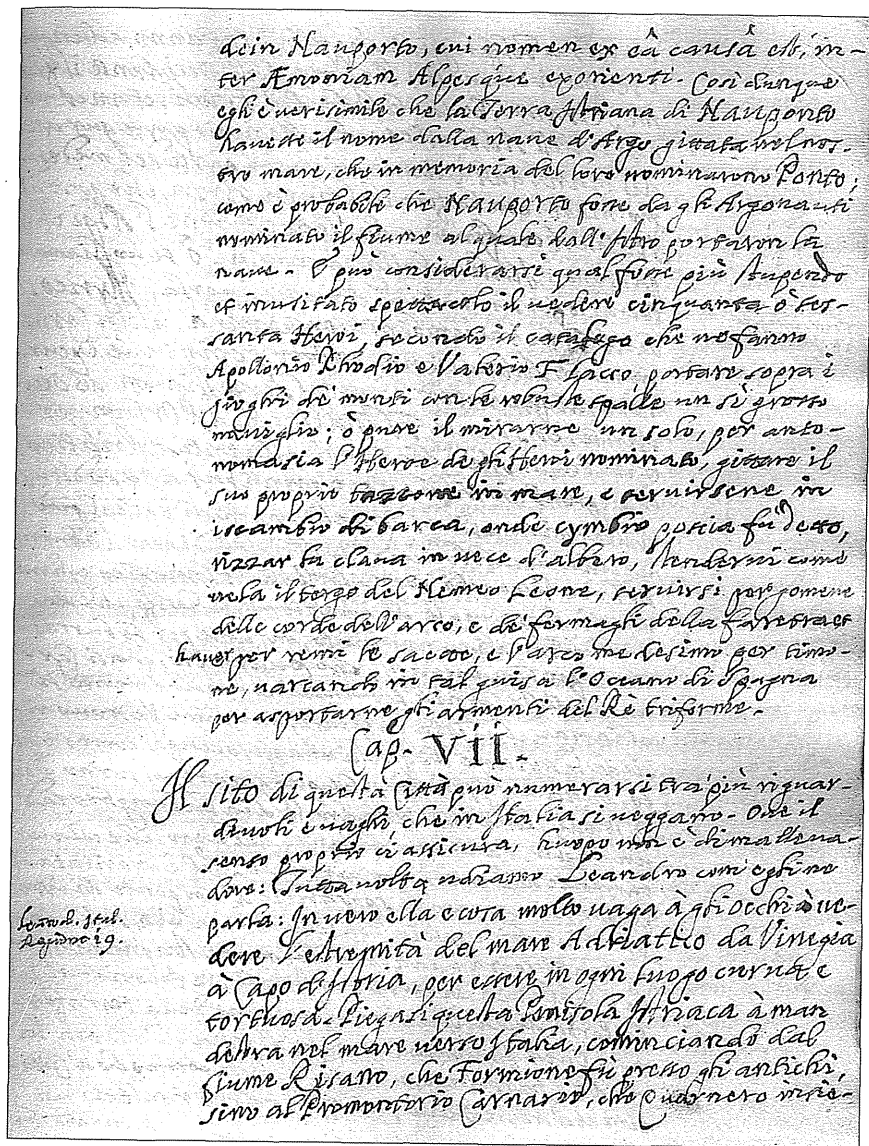 dein Nauporto, cui nomen ex eâ causâ est, in-
ter Æmoniam Alpesque exorienti. Così dunque
egli è verisimile che la Terra Istriana di Nauporto
havesse il nome dalla nave d'Argo gittata nel nos-
tro mare, che in memoria del loro nominarono Ponto;
como è probabile che Nauporto fosse da gli Argonauti
nominato il fiume al quale dall'Istro portaron la
nave. E può considerarsi qual fosse più stupendo
et inusitato spettacolo il vedere cinquanta ò ses-
santa Heroi, secondo il catalogo che ne fanno
Apollonio Rhodio e Valerio Flacco, portare sopra i
gioghi de' monti con le robuste spalle un sì grosso
naviglio; ò pure il mirarne un solo, per anto-
nomasia l'Heroe de gli Heroi nominato, gittare il
suo proprio tazzone in mare, e servirsene in
iscambio di barca, onde cymbio poscia fù detto,
rizzar la clava in vece d'albero, stendervi come
vela il tergo del Nemeo Leone, servirsi per gomene
delle corde dell'arco, e de' fermagli della faretra et
haver per remi le saette, e l'arco medesimo per timo-
ne, varcando in tal guisa l'Oceano di Spagna
per asportarne gli armenti del Rè triforme.
Cap. VII.
Il sito di questa Città può numerarsi tra' più riguar-
devoli e vaghi, che in Italia si veggano. Ove il
senso proprio ci assicura, huopo non è di malleva-
dore: Tutta volta udiamo Leandro com'egli ne
parla: In vero ella e cosa molto vaga à gli occhi à ve-
dere l'estremità del mare Adriatico da Vinegia
à Capo d'Istria, per essere in ogni luogo curva e
tortuosa. Piegasi questa Penisola Istriaca à man
destra nel mare verso Italia, cominciando dal
fiume Risano, che Formione fù presso gli antichi,
sino al Promontorio Carnario, che Quarnero insie-
Leand. Ital.
19.